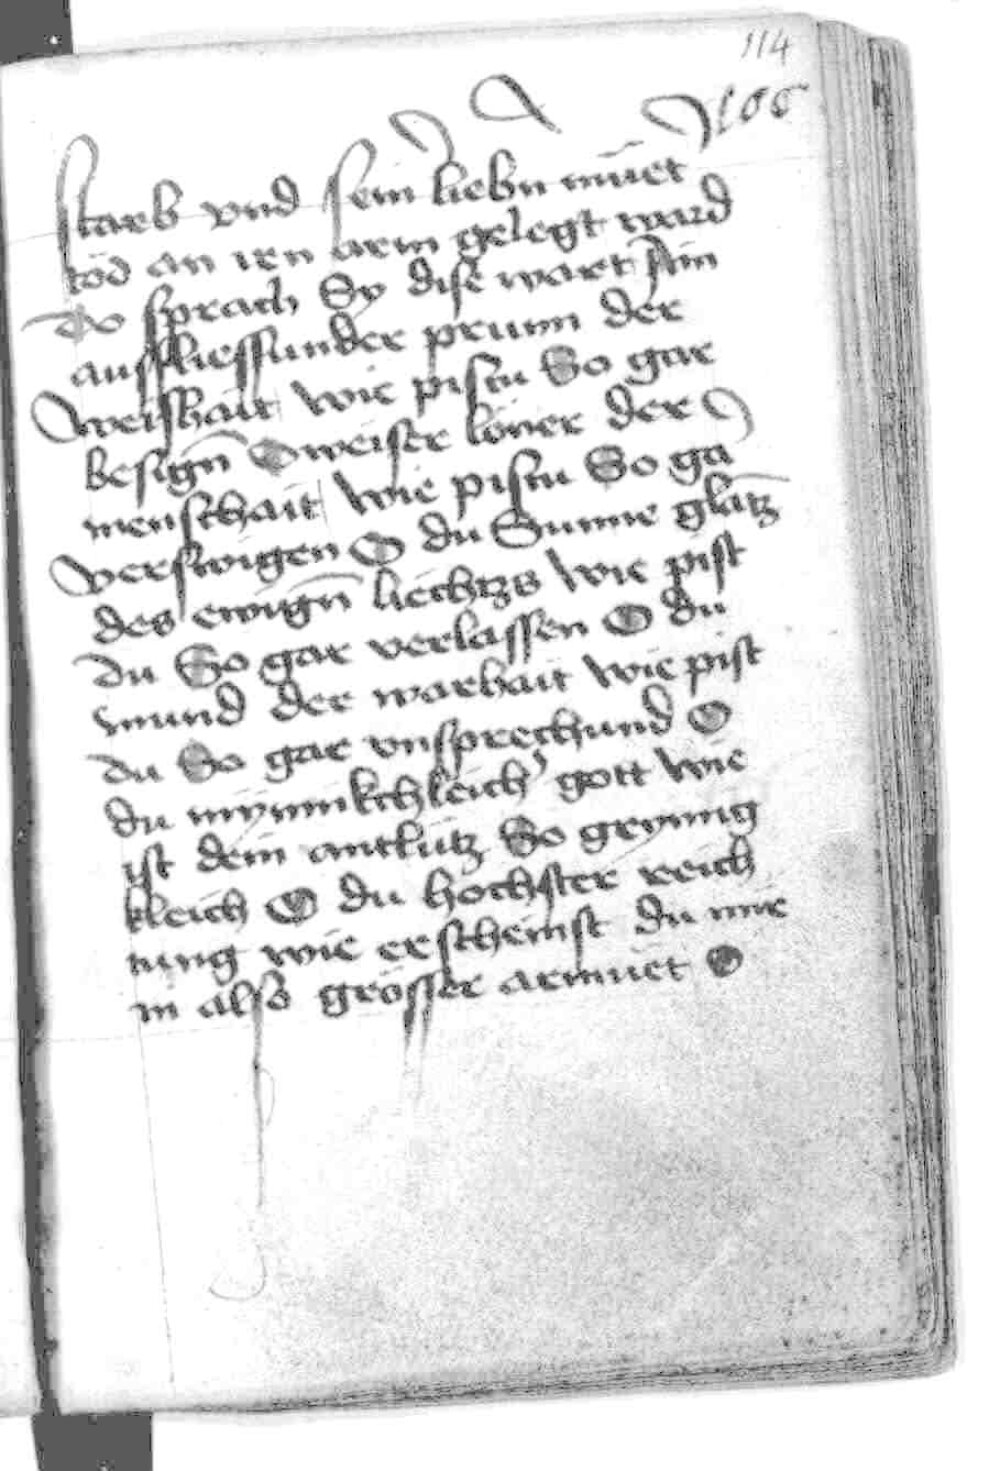 114
166
starb vnd sein liebn müet
töd an irn arm gelegt ward
do sprach Sy dise wort Ain
ausfliessunder prunn der
weishait wie pistu So gar
besign O weiser löner der
menschait wie pistu So ga
verswigen O du Sunne glatz
des ewign liechtzs wie pist
du So gar verlassen O du
mund der warhait wie pist
du So gar vnsprechund O
du mynnikchleich gott wie
ist dein antlütz So grymig
kleich O du höchster reich
tung wie erscheinst du mir
in also grösser armüet O